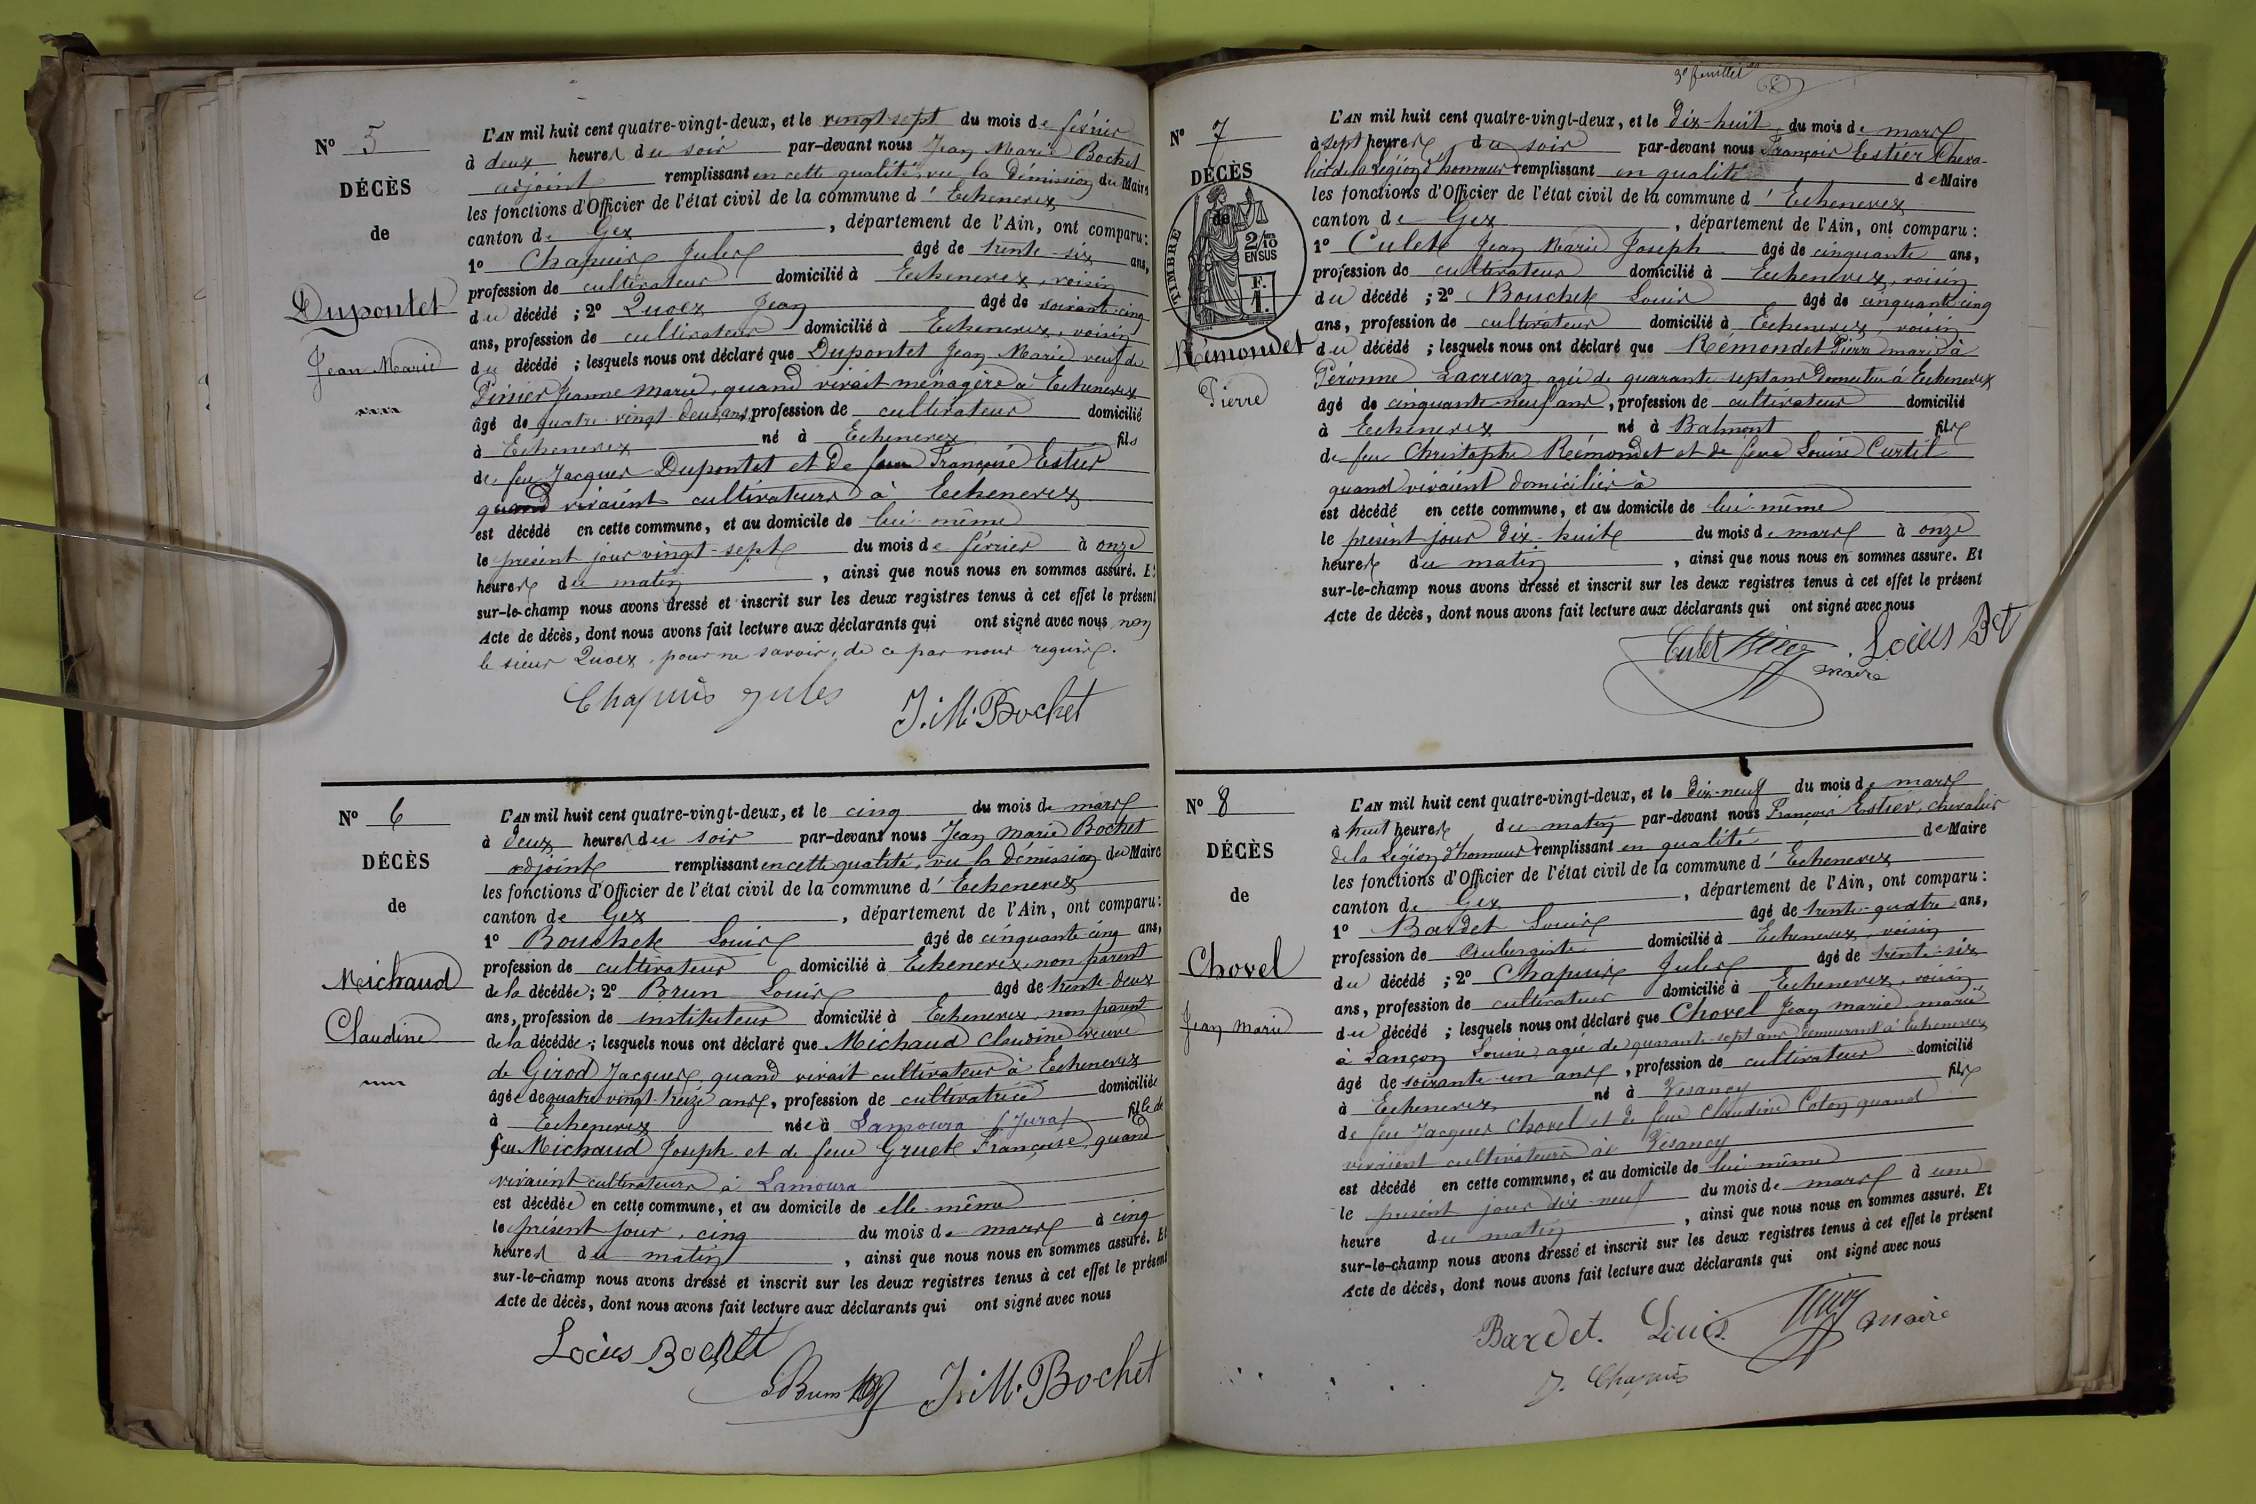 N° 5
DÉCÈS
de
Dupontet
Jean Marie
L'AN mil huit cent quatre-vingt-deux, et le vingt sept du mois de février
à deux heures du soir par-devant nous Jean Marie Bochet
adjoint remplissant en cette qualité, vu la démission du Maire
les fonctions d'Officier de l'état civil de la commune d'Echenevex
canton de Gex, département de l'Ain, ont comparu :
1° Chapuis Jules âgé de trente-six ans,
profession de cultivateur domicilié à Echenevex, voisin
du décédé ; 2° Quoex Jean âgé de soixante-cinq
ans, profession de cultivateur domicilié à Echenevex, voisin
du décédé ; lesquels nous ont déclaré que Dupontet Jean Marie veuf de
Pinier Jeanne Marie, quand vivait ménagère à Echenevex
âgé de quatre-vingt-deux ans, profession de cultivateur domicilié
à Echenevex né à Echenevex fils
de feu Jacques Dupontet et de feue Françoise Estier
quand vivaient cultivateurs à Echenevex
est décédé en cette commune, et au domicile de lui-même
le présent jour vingt-sept du mois de février à onze
heures du matin, ainsi que nous nous en sommes assuré. Et
sur-le-champ nous avons dressé et inscrit sur les deux registres tenus à cet effet le présent
Acte de décès, dont nous avons fait lecture aux déclarants qui ont signé avec nous non
le sieur Quoex, pour ne savoir, de ce par nous requis.
Chapuis Jules J. M. Bochet
N° 6
DÉCÈS
de
Michaud
Claudine
L'AN mil huit cent quatre-vingt-deux, et le cinq du mois de mars
à deux heures du soir par-devant nous Jean Marie Bochet
adjoint remplissant en cette qualité, vu la démission du Maire
les fonctions d'Officier de l'état civil de la commune d'Echenevex
canton de Gex, département de l'Ain, ont comparu :
1° Bouchet Louis âgé de cinquante-cinq ans,
profession de cultivateur domicilié à Echenevex, non parent
de la décédée ; 2° Brun Louis âgé de trente-deux
ans, profession de instituteur domicilié à Echenevex, non parent
de la décédée ; lesquels nous ont déclaré que Michaud Claudine veuve
de Girod Jacques, quand vivait cultivateur à Echenevex
âgée de quatre-vingt-treize ans, profession de cultivatrice domiciliée
à Echenevex née à Lamoura (Jura) fille de
feu Michaud Joseph et de feue Gruet Françoise, quand
vivaient cultivateurs à Lamoura
est décédée en cette commune, et au domicile de elle-même
le présent jour, cinq du mois de mars à cinq
heures du matin, ainsi que nous nous en sommes assuré. Et
sur-le-champ nous avons dressé et inscrit sur les deux registres tenus à cet effet le présent
Acte de décès, dont nous avons fait lecture aux déclarants qui ont signé avec nous
Locius Bochet
L Brun J. M. Bochet
3e feuillet
N° 7
DÉCÈS
de
TIMBRE
2/10
EN SUS
F.
1.
Rémondet
Pierre
L'AN mil huit cent quatre-vingt-deux, et le Dix-huit du mois de mars
à sept heures du soir par-devant nous François Estier Cheva-
lier de la Légion d'honneur remplissant en qualité de Maire
les fonctions d'Officier de l'état civil de la commune d'Echenevex
canton de Gex, département de l'Ain, ont comparu :
1° Culet Jean Marie Joseph âgé de cinquante ans,
profession de cultivateur domicilié à Echenevex, voisin
du décédé ; 2° Bouchet Louis âgé de cinquante-cinq
ans, profession de cultivateur domicilié à Echenevex, voisin
du décédé ; lesquels nous ont déclaré que Rémondet Pierre marié à
Péronne Lacrevaz agée de quarante-sept ans Domiciliée à Echenevex
âgé de cinquante-neuf ans, profession de cultivateur domicilié
à Echenevex né à Balmont fils
de feu Christophe Rémondet et de feue Louise Curtil
quand vivaient domiciliés à
est décédé en cette commune, et au domicile de lui-même
le présent jour dix-huit du mois de mars à onze
heures du matin, ainsi que nous nous en sommes assuré. Et
sur-le-champ nous avons dressé et inscrit sur les deux registres tenus à cet effet le présent
Acte de décès, dont nous avons fait lecture aux déclarants qui ont signé avec nous
Culet Locius Bt
maire
N° 8
DÉCÈS
de
Chovel
Jean Marie
L'AN mil huit cent quatre-vingt-deux, et le Dix-neuf du mois de mars
à huit heures du matin par-devant nous François Estier, chevalier
de la Légion d'honneur remplissant en qualité de Maire
les fonctions d'Officier de l'état civil de la commune d'Echenevex
canton de Gex, département de l'Ain, ont comparu :
1° Bardet Louis âgé de trente-quatre ans,
profession de Aubergiste domicilié à Echenevex, voisin
du décédé ; 2° Chapuis Jules âgé de trente-six
ans, profession de cultivateur domicilié à Echenevex, voisin
du décédé ; lesquels nous ont déclaré que Chovel Jean Marie marié
à Lançon Louise, agée de quarante-sept ans demeurant à Echenevex
âgé de soixante-un ans, profession de cultivateur domicilié
à Echenevex né à Vesancy fils
de feu Jacques Chovel et de feue Claudine Coton quand
vivaient cultivateurs à Vesancy
est décédé en cette commune, et au domicile de lui-même
le présent jour dix-neuf du mois de mars à une
heure du matin, ainsi que nous nous en sommes assuré. Et
sur-le-champ nous avons dressé et inscrit sur les deux registres tenus à cet effet le présent
Acte de décès, dont nous avons fait lecture aux déclarants qui ont signé avec nous
Bardet. Louis maire
J. Chapuis